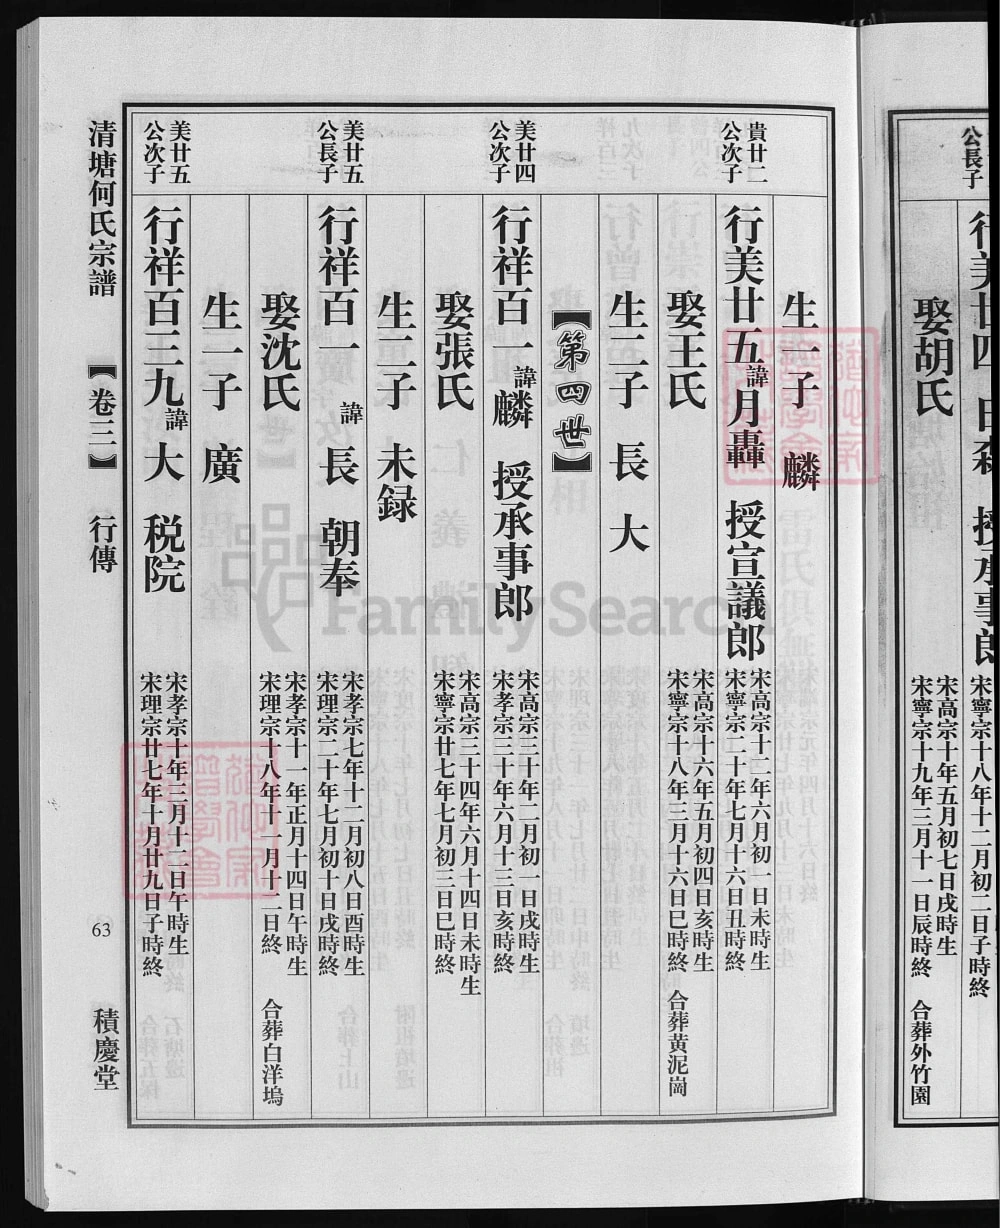 行美廿四 授承事郎 宋寧宗十八年十二月初二日子時終
公長子
娶胡氏 宋高宗十年五月初七日戌時生
宋寧宗十九年三月十一日辰時終 合葬外竹園
生一子 麟
貴廿二
公次子
行美廿五諱月轟 授宣議郎 宋高宗十二年六月初一日未時生
宋寧宗二十年七月十六日丑時終
娶王氏 宋高宗十六年五月初四日亥時生
宋寧宗十八年三月十六日巳時終 合葬黄泥崗
生二子 長 大
【第四世】
美廿四
公次子
行祥百一諱麟 授承事郎 宋高宗三十年二月初一日戌時生
宋孝宗三十年六月十三日亥時終
娶張氏 宋高宗三十四年六月十四日未時生
宋寧宗廿七年七月初三日巳時終
生二子 未録
美廿五
公長子
行祥百一 諱長 朝奉 宋孝宗七年十二月初八日酉時生
宋理宗二十年七月初十日戌時終
娶沈氏 宋孝宗十一年正月十四日午時生
宋理宗十八年十一月十二日終 合葬白洋塢
生一子 廣
美廿五
公次子
行祥百三九諱大 税院 宋孝宗十年三月十一日午時生
宋理宗廿七年十月廿九日子時終
清塘何氏宗譜 【卷三】 行傳 63 積慶堂
FamilySearch